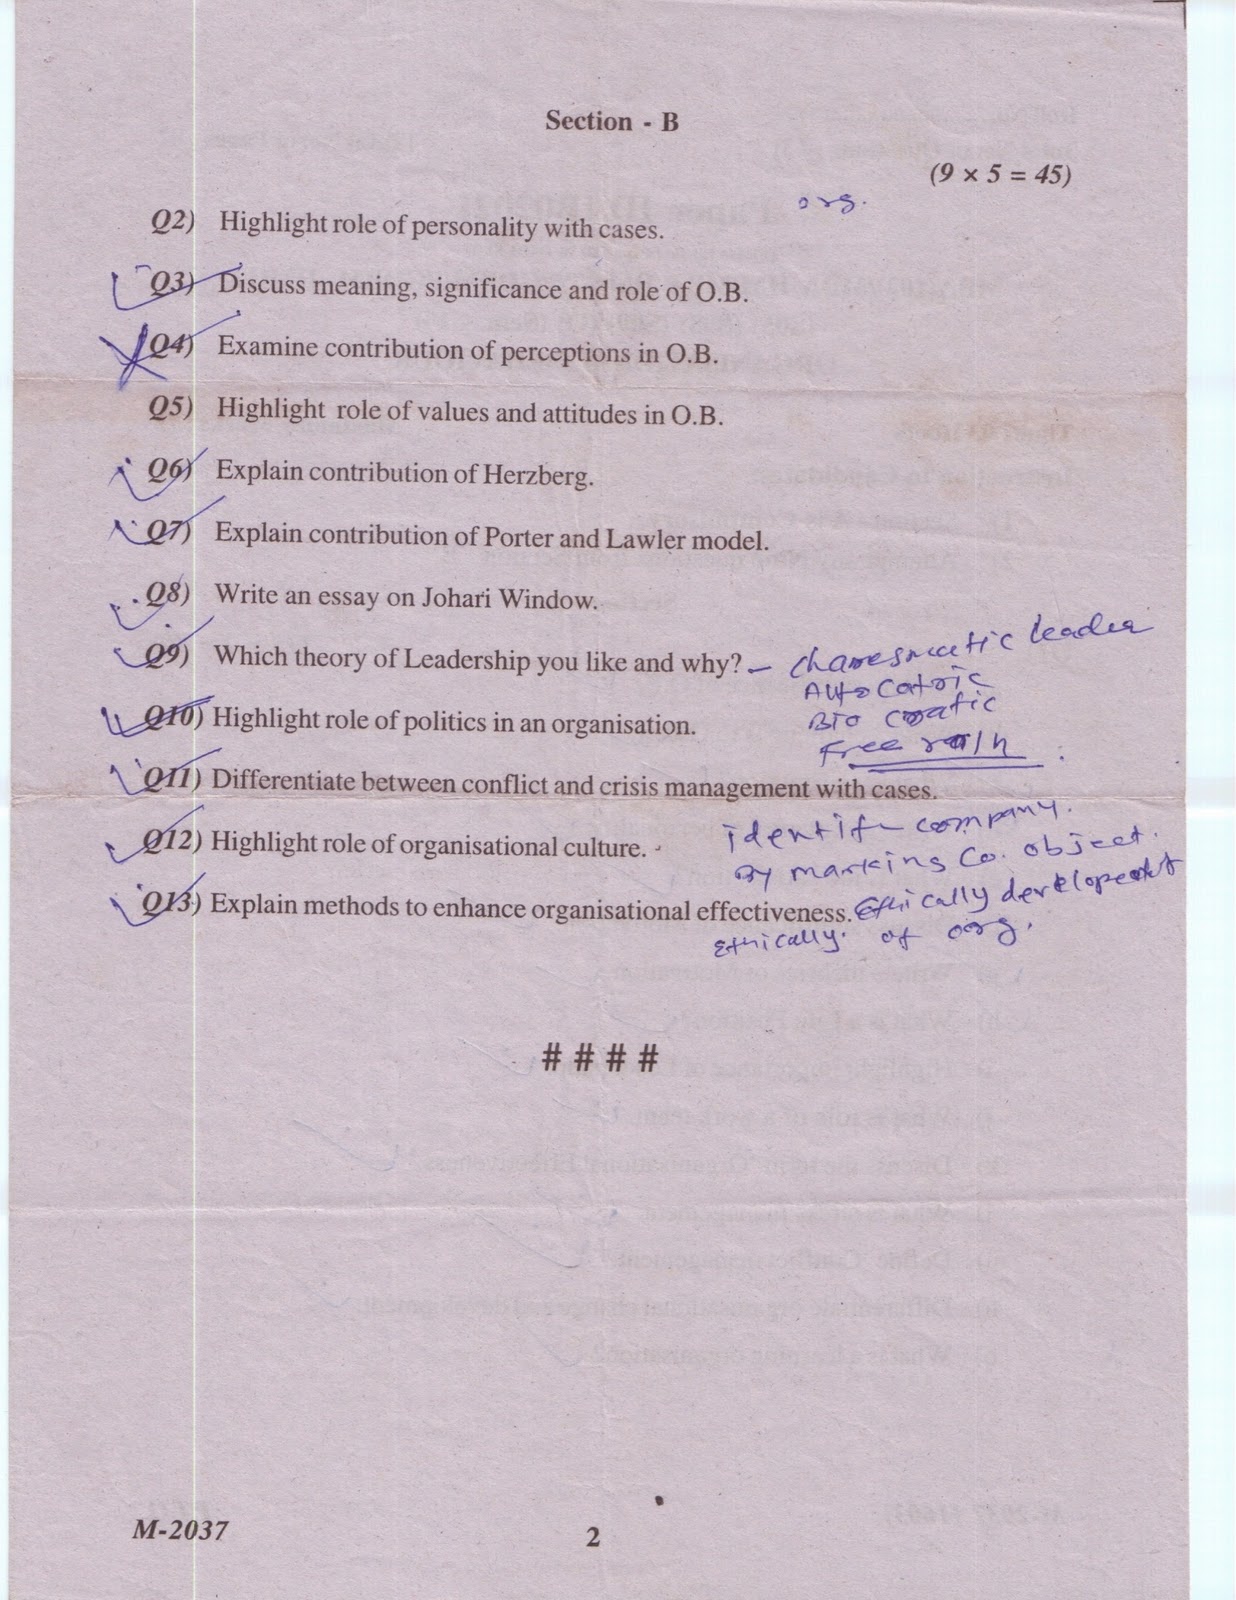 Section - B
(9 × 5 = 45)
org.
Q2) Highlight role of personality with cases.
Q3) Discuss meaning, significance and role of O.B.
Q4) Examine contribution of perceptions in O.B.
Q5) Highlight role of values and attitudes in O.B.
Q6) Explain contribution of Herzberg.
Q7) Explain contribution of Porter and Lawler model.
Q8) Write an essay on Johari Window.
Q9) Which theory of Leadership you like and why? – Charesmatic leader
Autocatric
Bio cratic
Q10) Highlight role of politics in an organisation.
Free rain
Q11) Differentiate between conflict and crisis management with cases.
identify company.
Q12) Highlight role of organisational culture.
By marking Co. object.
Q13) Explain methods to enhance organisational effectiveness. Ethically development
Ethically. of org.
# # # #
M-2037
2